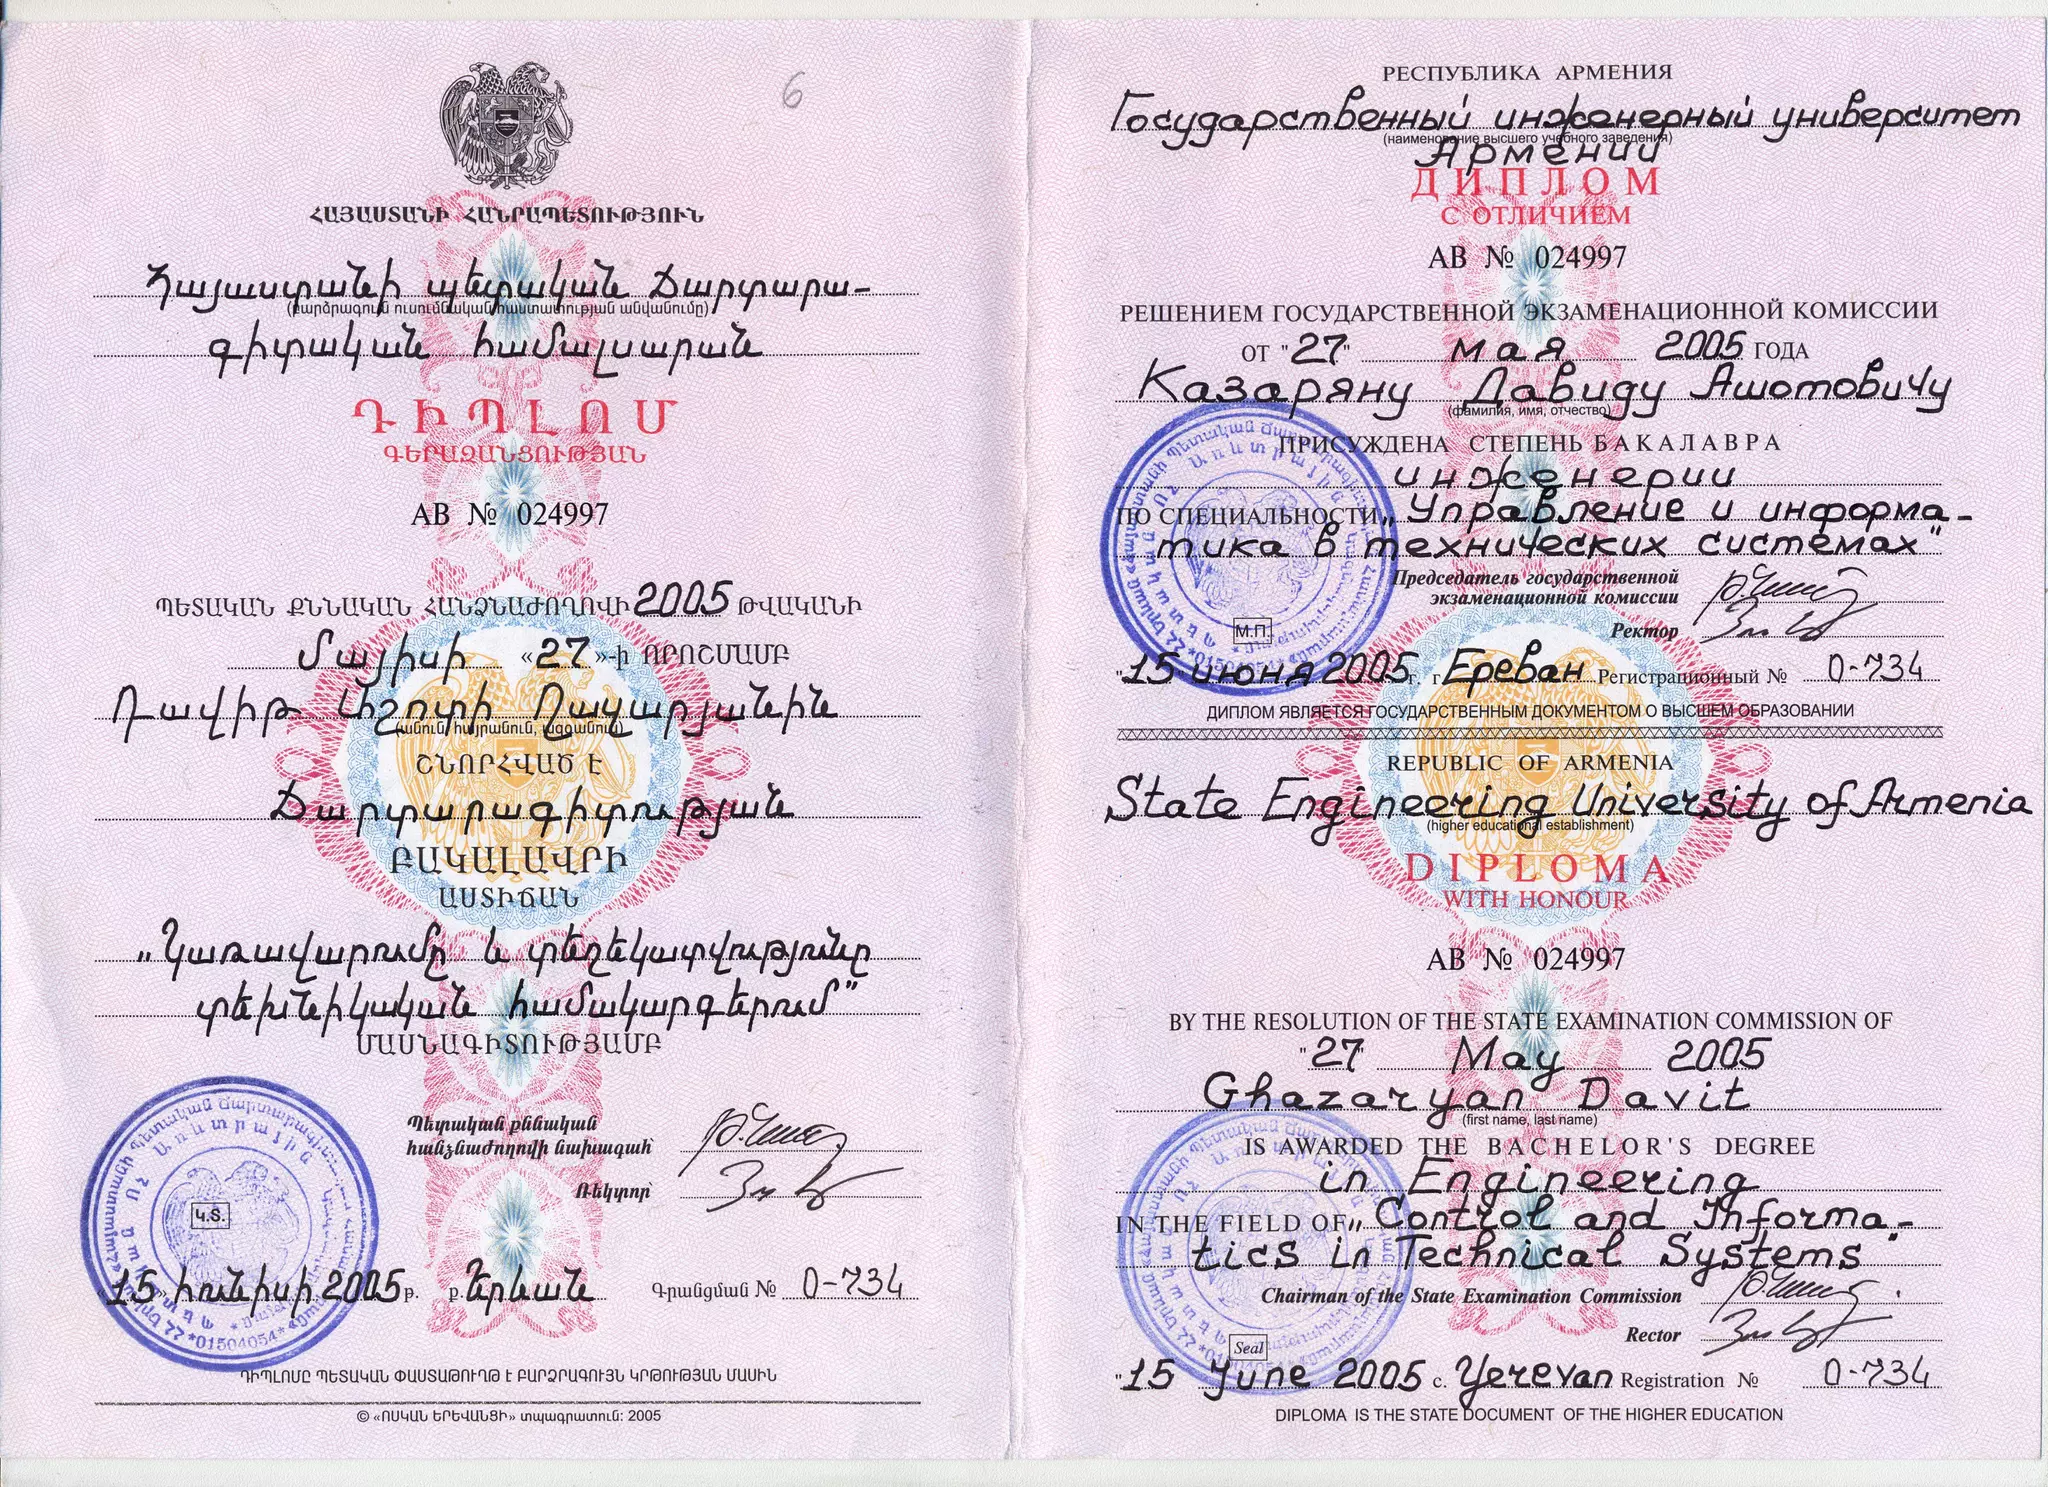 6
ՀԱՅԱՍՏԱՆԻ ՀԱՆՐԱՊԵՏՈՒԹՅՈՒՆ
Հայաստանի պետական ճարտարա-
(բարձրագույն ուսումնական հաստատության անվանումը)
գիտական համալսարան
ԴԻՊԼՈՄ
ԳԵՐԱԶԱՆՑՈՒԹՅԱՆ
AB № 024997
ՊԵՏԱԿԱՆ ՔՆՆԱԿԱՆ ՀԱՆՁՆԱԺՈՂՈՎԻ 2005 ԹՎԱԿԱՆԻ
մայիսի «27»-ի ՈՐՈՇՄԱՄԲ
Դավիթ Աշոտի Ղազարյանին
(անուն, հայրանուն, ազգանուն)
ՇՆՈՐՀՎԱԾ Է
ճարտարագիտության
ԲԱԿԱԼԱՎՐԻ
ԱՍՏԻՃԱՆ
„Կառավարումը և տեղեկատվությունը
տեխնիկական համակարգերում"
ՄԱՍՆԱԳԻՏՈՒԹՅԱՄԲ
Պետական քննական
հանձնաժողովի նախագահ՝
Ռեկտոր՝
Կ.Տ.
«15» հունիսի 2005թ. ք. Երևան Գրանցման № 0-734
ԴԻՊԼՈՄԸ ՊԵՏԱԿԱՆ ՓԱՍՏԱԹՈՒՂԹ Է ԲԱՐՁՐԱԳՈՒՅՆ ԿՐԹՈՒԹՅԱՆ ՄԱՍԻՆ
© «ՈՍԿԱՆ ԵՐԵՎԱՆՑԻ» տպագրատուն: 2005
РЕСПУБЛИКА АРМЕНИЯ
Государственный инженерный университет
(наименование высшего учебного заведения)
Армении
ДИПЛОМ
С ОТЛИЧИЕМ
AB № 024997
РЕШЕНИЕМ ГОСУДАРСТВЕННОЙ ЭКЗАМЕНАЦИОННОЙ КОМИССИИ
ОТ "27" мая 2005 ГОДА
Казаряну Давиду Ашотовичу
(фамилия, имя, отчество)
ПРИСУЖДЕНА СТЕПЕНЬ БАКАЛАВРА
инженерии
ПО СПЕЦИАЛЬНОСТИ „Управление и информа-
тика в технических системах"
Председатель государственной
экзаменационной комиссии
Ректор
М.П.
"15" июня 2005г. г. Ереван Регистрационный № 0-734
ДИПЛОМ ЯВЛЯЕТСЯ ГОСУДАРСТВЕННЫМ ДОКУМЕНТОМ О ВЫСШЕМ ОБРАЗОВАНИИ
REPUBLIC OF ARMENIA
State Engineering University of Armenia
(higher educational establishment)
DIPLOMA
WITH HONOUR
AB № 024997
BY THE RESOLUTION OF THE STATE EXAMINATION COMMISSION OF
"27" May 2005
Ghazaryan Davit
(first name, last name)
IS AWARDED THE BACHELOR'S DEGREE
in Engineering
IN THE FIELD OF „Control and Informa-
tics in Technical Systems"
Chairman of the State Examination Commission
Rector
Seal
"15 June 2005 c. Yerevan Registration № 0-734
DIPLOMA IS THE STATE DOCUMENT OF THE HIGHER EDUCATION